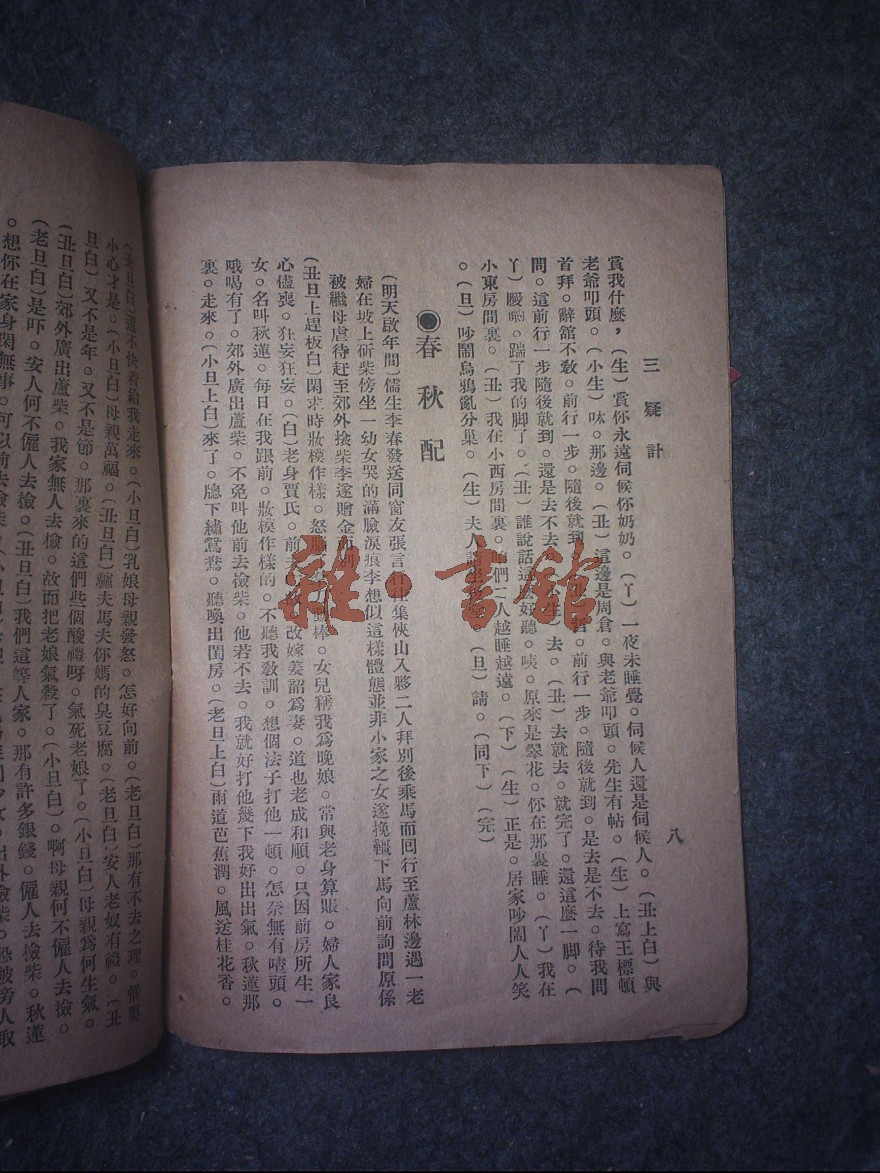 三疑計
八
賞我什麽，(生)賞你永遠伺候你奶奶。(丫)一夜未睡覺。伺候人還是伺候人。(丑上白)與
老爺叩頭。(小生)呔。那邊。(丑)這邊是周倉。與老爺叩頭。先生有帖。(生)上寫王標頓
首拜。辭舘不敎。前行一步。隨後就到。前行一步。隨後就到。是去是不去。待我問
問。這前行一步隨後就到。還是去不去。生)去。(丑)去就去。就完了。還這麽一脚。(
丫)噯喲。踹了我的脚了。(丑)誰說話這好聽。咦。原來是翠花。你在那裏睡。(丫)我在
小東房間裏。(丑)我在小西房間裏。們二人越睡越遠。(下)(生)正是。居家吵鬧人人笑
。(旦)吵鬧烏鴉亂分巢。(生)夫人請。(旦)請。(同下)(完)
●春秋配
(明天啟年間)儒生李春發送同窗友張言行往集俠山入夥二人拜別後乘馬而回行至蘆林邊遇一老
婦在坡上斫柴傍坐一幼女哭的滿臉淚痕李想似這樣體態並非小家之女遂挽韁下馬向前詢問原係
被繼母虐待赶至郊外撿柴李遂贈金而別
(丑旦上趕板白)閑求時妝模作樣。怒棒。女兒稱我爲晚娘。常與老身算賬。婦人家良
心儘喪。狂妄狂妄。(白)老身賈氏。前夫改嫁姜韶爲妻。道也老成和順。只因前房所生一
女。名叫秋蓮。每日在我跟前。妝模作樣的。不聽我敎訓。想個法子打他一頓。怎奈無有喳頭。
哦喝有了。郊外廣出蘆柴。不免叫他前去撿柴。他若不去。我就好打他幾下我好出出氣。秋蓮那
裏。走來。(小旦上白)來了。牕下繡鴛鴦。聽喚出閨房。(老旦上白)雨道芭蕉潤。風送桂花香。
(丑旦白)還不快着給我走來。(小旦白)乳娘母親發怒。怎好向前。(老旦白)那有不去之理。
小心才是。(小旦白)母親萬福。(丑旦白)驢夫馬夫你媽的臭豆腐。(老旦白)安人老奴有禮。(丑
旦白)又不是年。又不是節。那裏來的這們些個酸禮呀。氣死老娘了。(小旦白)母親爲何生氣。
(丑旦白)郊外廣出蘆柴。我家無人去撿。故而把老娘氣殺了。(小旦白)啊母親何不僱人去撿。
(老旦白)是吓。安人何不僱人去撿。(丑旦白)我們這等人家。那有許多銀錢。僱人去撿柴。秋蓮
。想你在家身閑無事。可以前去撿柴。
雜·書館